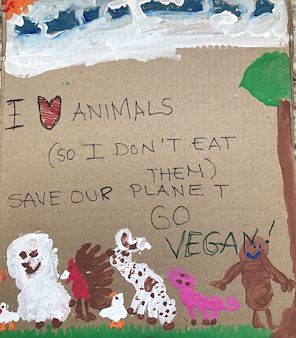 I ♥ ANIMALS
(SO I DON'T EAT
THEM)
SAVE OUR PLANET
GO
VEGAN!